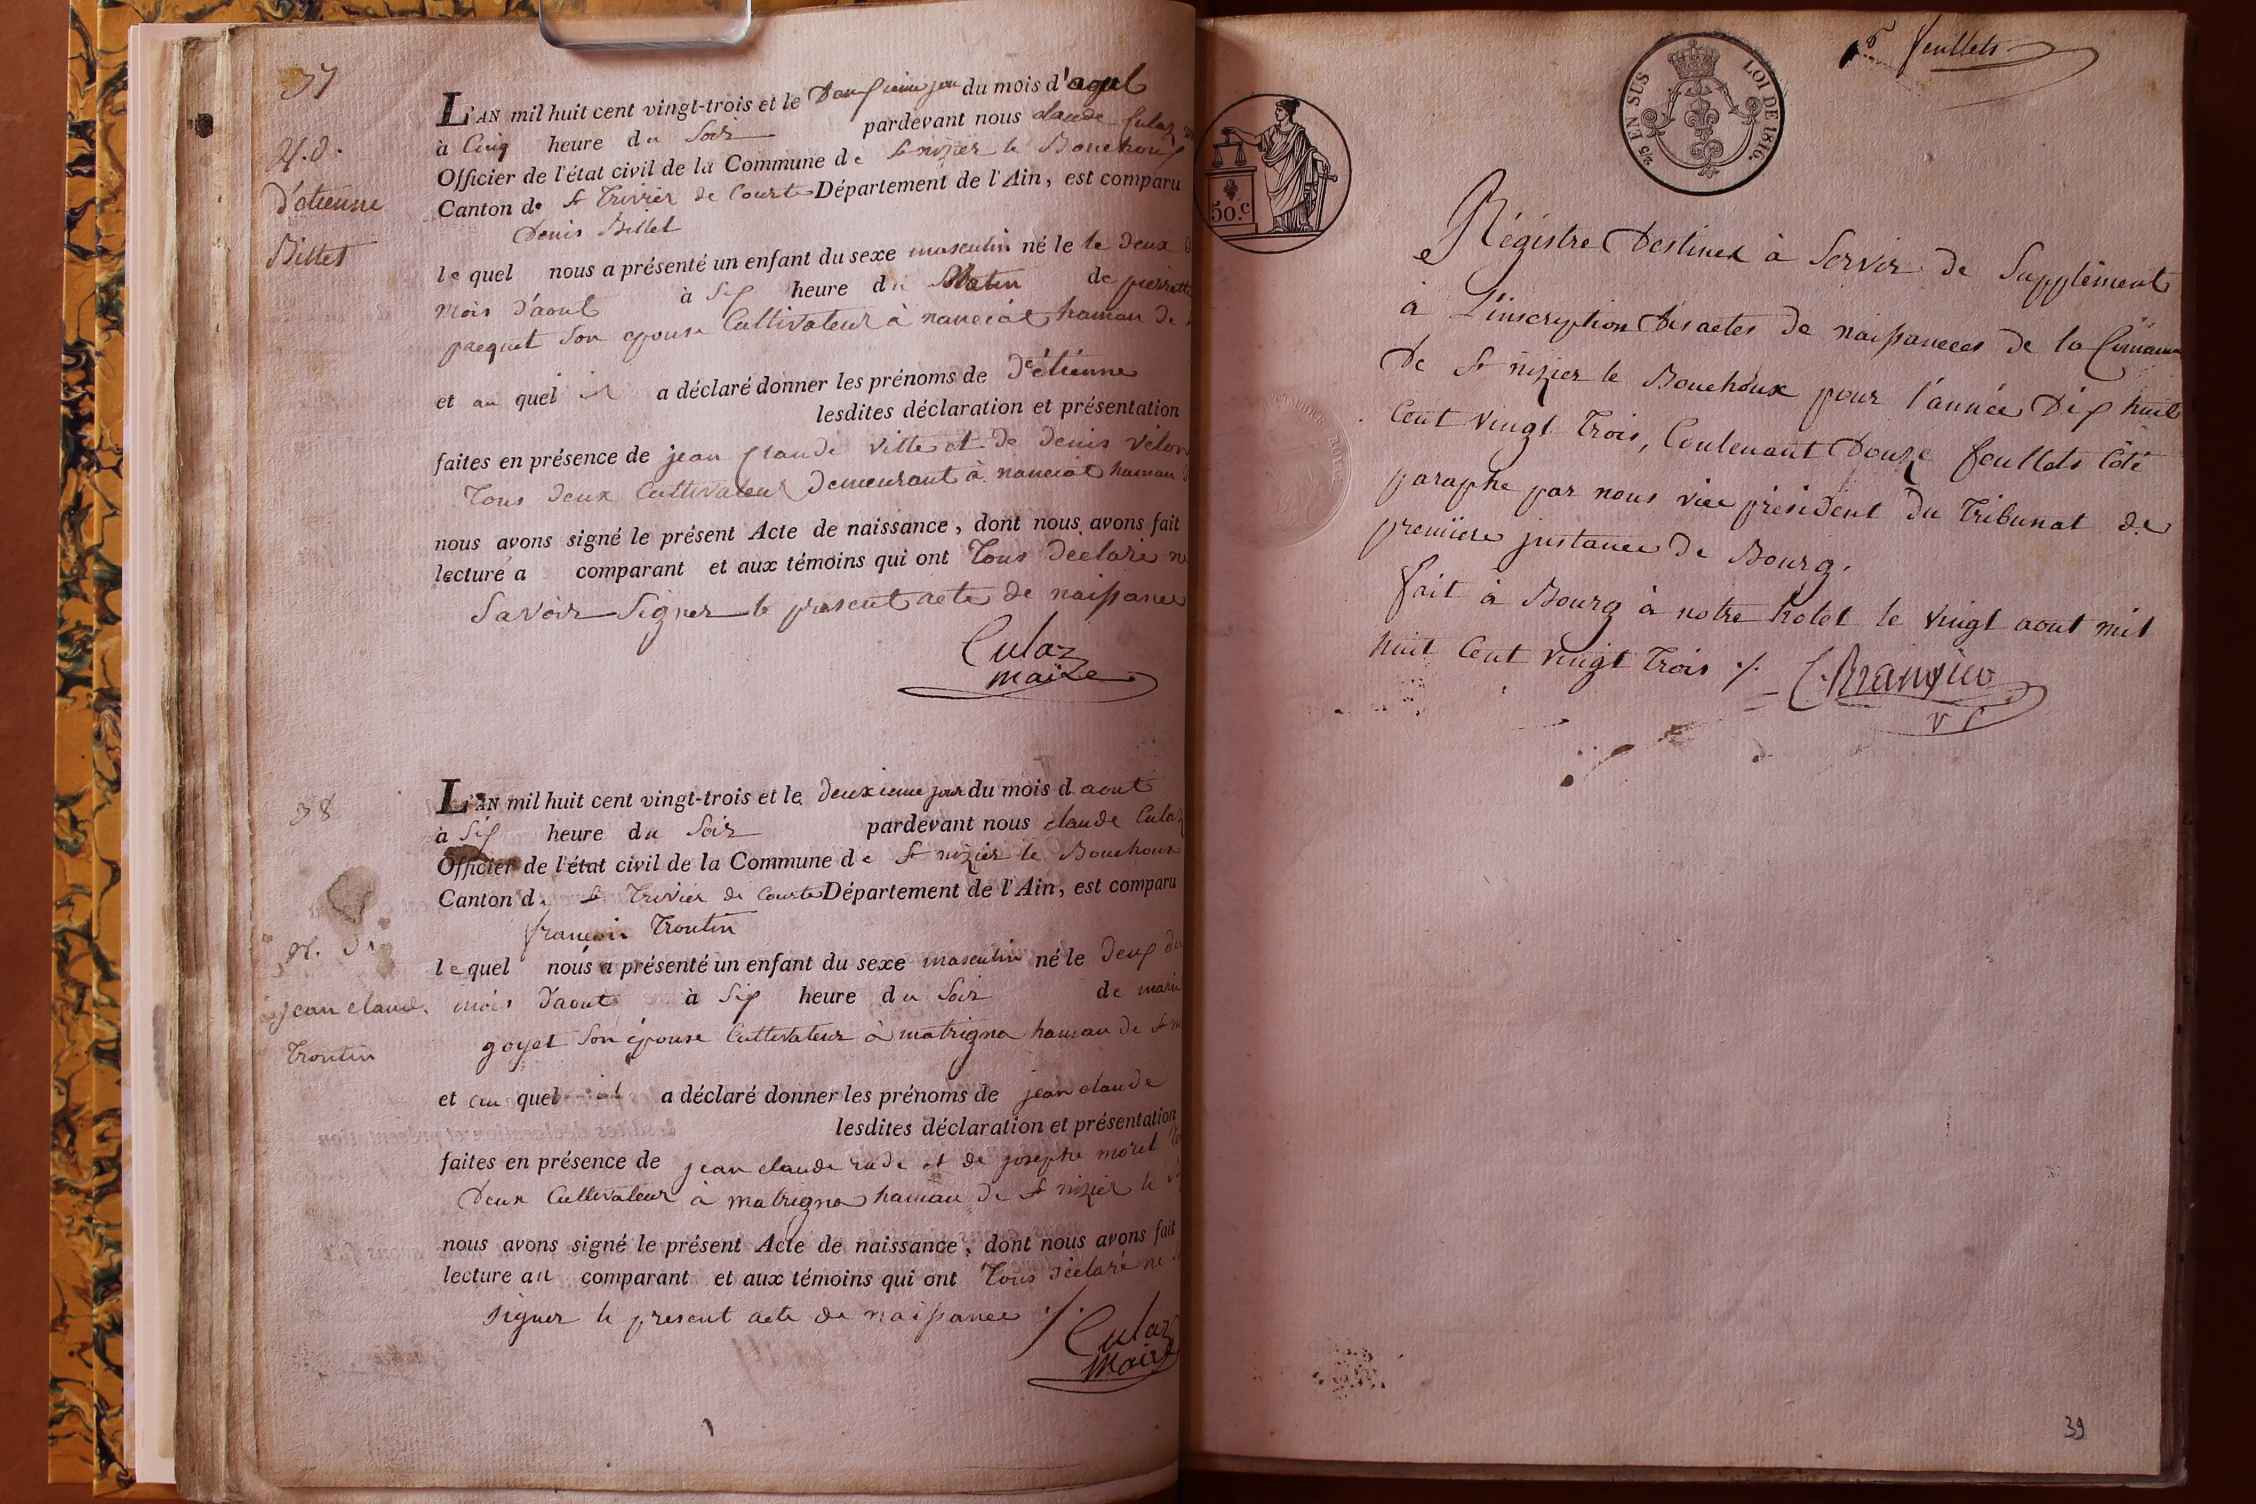 37
N. d.
D'étienne
Billet
L'AN mil huit cent vingt-trois et le jour du mois d'aout
à Cinq heure du Soir pardevant nous claude Culaz
Officier de l'état civil de la Commune de St nizier le Bouchoux
Canton de St Trivier de Courte Département de l'Ain, est comparu
Denis Billet
le quel nous a présenté un enfant du sexe masculin né le le deux
mois d'aout à Six heure du Matin de pierrette
pacquet Son epouse Cultivateur à nanciat hamau de
et au quel il a déclaré donner les prénoms de D'étiénne
lesdites déclaration et présentation
faites en présence de jean Claude Villet et de Denis
Tous deux Cultivateur demeurant à nanciat hamau
nous avons signé le présent Acte de naissance, dont nous avons fait
lecture a comparant et aux témoins qui ont Tous Déclaré n
Savoir Signer le present acte de naissance
Culaz
maire
38
N. d.
jean claude
Trontin
L'AN mil huit cent vingt-trois et le deuxieme jour du mois d aout
à Six heure du Soir pardevant nous claude Culaz
Officier de l'état civil de la Commune de St nizier le Bouchoux
Canton d. St Trivier de Courte Département de l'Ain, est comparu
françois Trontin
le quel nous a présenté un enfant du sexe masculin né le Deux du
mois d'aout à Six heure du Soir de marie
goyet Son épouse Cultivateur à matrigna hamau de St
et au quel il a déclaré donner les prénoms de jean claude
lesdites déclaration et présentation
faites en présence de jean claude rude et de josephe morel
Deux Cultivateur à matrigna hamau de St nizier le
nous avons signé le présent Acte de naissance, dont nous avons fait
lecture au comparant et aux témoins qui ont Tous déclaré ne
Signer le present acte de naissance ./.
Culaz
Maire
feuillets
2/5 EN SUS LOI DE 1816.
50.c
Régistre Destiné à Servir de Supplément
à L'inscription Des actes de naissances de la Commune
De St nizier le Bouchoux pour l'année Dix huit
Cent Vingt Trois, Contenant Douze feuillets Côté
paraphé par nous vice président Du Tribunal de
premiere instance de Bourg.
fait à Bourg à notre hotel le vingt aout mil
huit Cent vingt Trois ./.
39